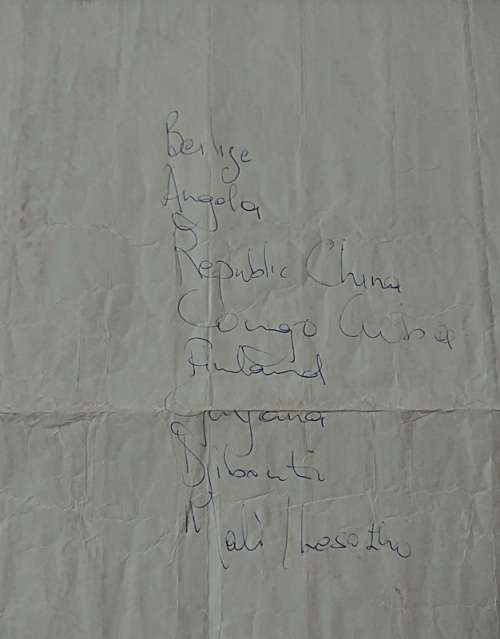 Belize
Angola
Republic China
Congo Cuba
Finland
Guyana
Djibouti
Mali / Lesotho